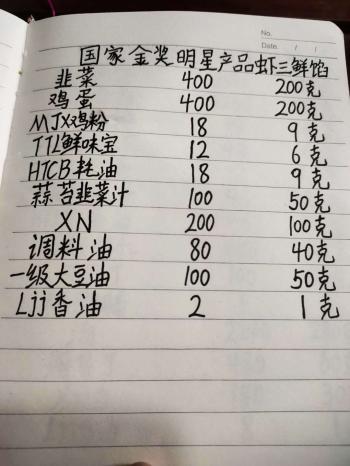 No.
Date / /
国家金奖明星产品虾三鲜馅
韭菜 400 200克
鸡蛋 400 200克
MJX鸡粉 18 9克
TTL鲜味宝 12 6克
HTCB耗油 18 9克
蒜苔韭菜汁 100 50克
XN 200 100克
调料油 80 40克
一级大豆油 100 50克
Ljj香油 2 1克